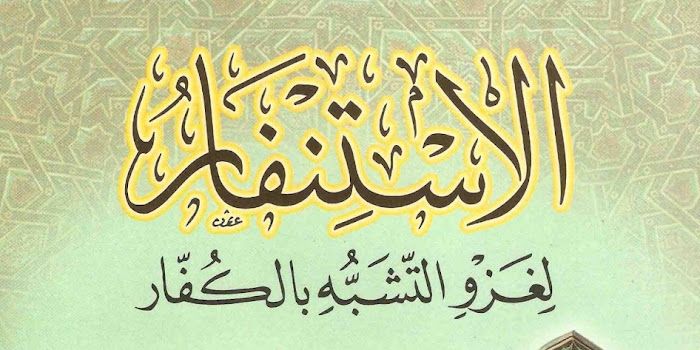 الاسْتِنْفَارُ
لِغَزْوِ التَّشَبُّهِ بِالكُفَّار